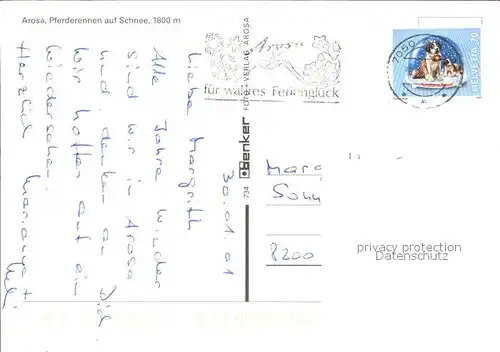 Arosa, Pferderennen auf Schnee, 1800 m
30.01.01
Liebe Margrith
Alle Jahre wieder
sind wir in Arosa
und denken an Dich
Wir hoffen auf ein
Wiedersehen.
Herzlich Marianne +
FOTO + VERLAG AROSA
Benker
734
Arosa
für wahres Ferienglück
7050
HELVETIA 70
Marg
Sonn
8200
privacy protection
Datenschutz